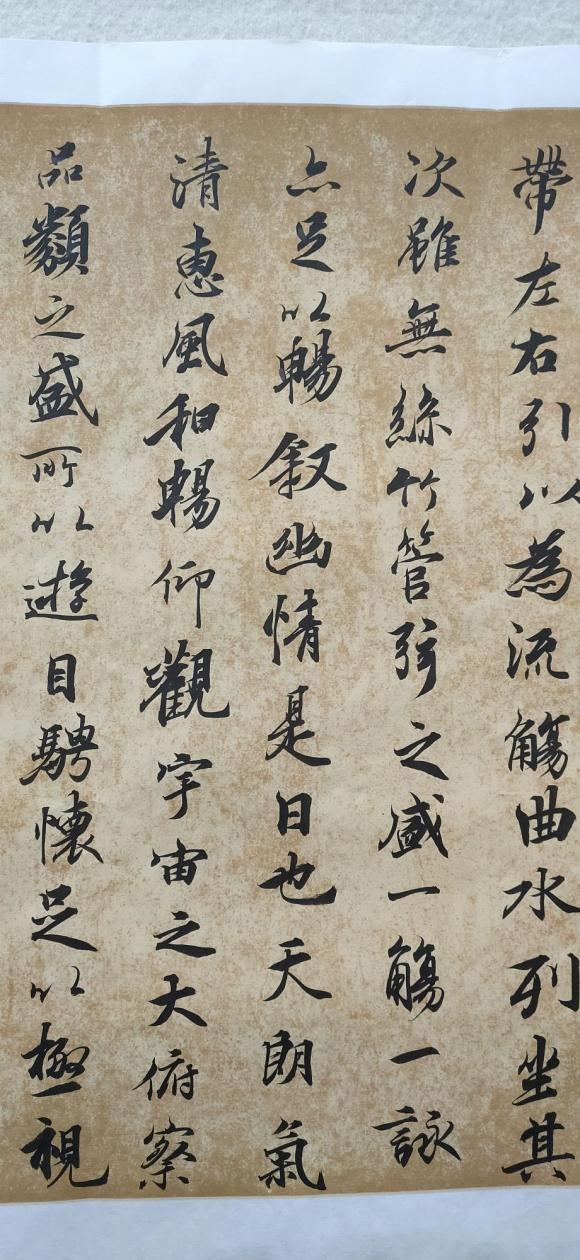 帶左右引以為流觴曲水列坐其
次雖無絲竹管弦之盛一觴一詠
亦足以暢敘幽情是日也天朗氣
清惠風和暢仰觀宇宙之大俯察
品類之盛所以遊目騁懷足以極視